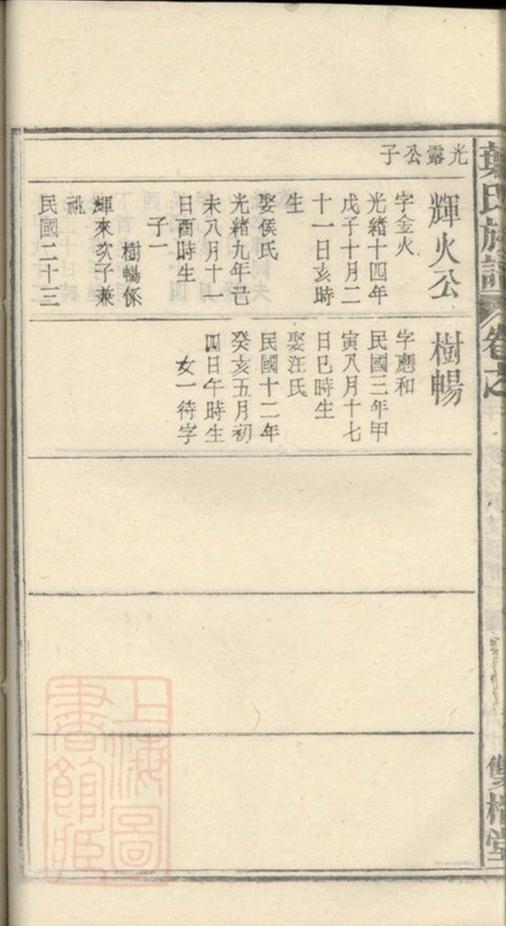 葉氏族譜
卷之
光露公子
輝火公
字金火
光緒十四年
戊子十月二
十一日亥時
生
娶侯氏
光緒九年己
未八月十一
日酉時生
子一
樹暢係
輝來次子兼
祧
民國二十三
樹暢
字應和
民國三年甲
寅八月十七
日巳時生
娶汪氏
民國十二年
癸亥五月初
四日午時生
女一待字
上海圖
書館